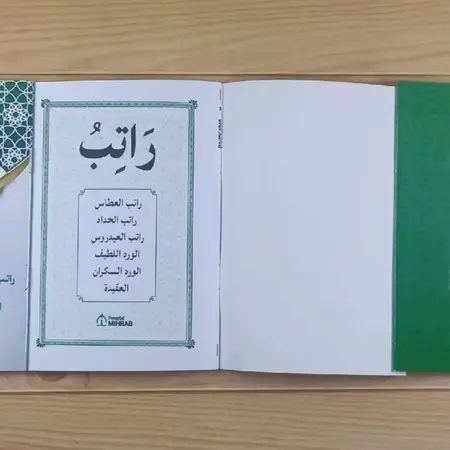 رَاتِبُ
راتب العطاس
راتب الحداد
راتب العيدروس
الورد اللطيف
الورد السكران
العقيدة
Penerbit
MIHRAB
راتب